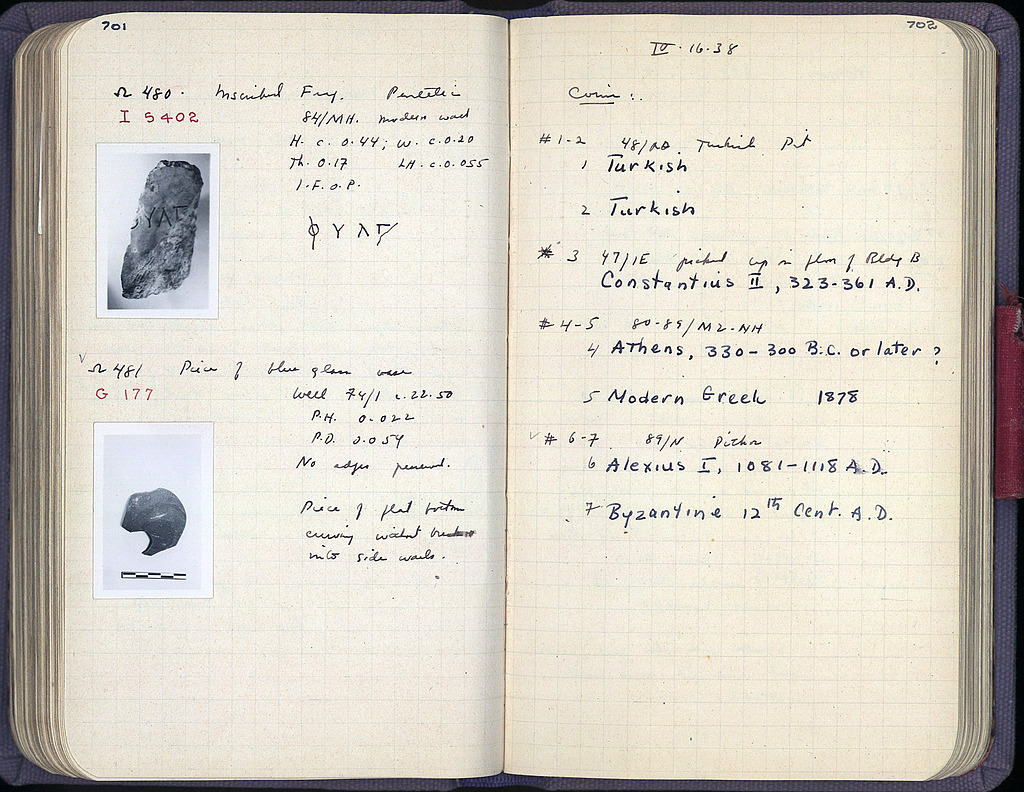 701
Ω 480. Inscribed Frag. Pentelic
I 5402
84/ΜΗ. modern wall
H. c. 0.44; W. c. 0.20
Th. 0.17 LH. c. 0.055
I.F.O.P.
ΦΥΛΓ
Ω 481 Piece of blue glass vase
G 177
Well 74/1 c. 22.50
P.H. 0.022
P.D. 0.054
No edges preserved.
Piece of flat bottom
curving without break
into side walls.
702
IV.16.38
Coins:
#1-2 48/ Turkish Pit
1 Turkish
2 Turkish
#3 47/ΙΕ picked up in floor of Bldg B
Constantius II, 323-361 A.D.
#4-5 80-89/ΜΖ-ΝΗ
4 Athens, 330-300 B.C. or later?
5 Modern Greek 1878
#6-7 89/Ν Pithos
6 Alexius I, 1081-1118 A.D.
7 Byzantine 12th Cent. A.D.